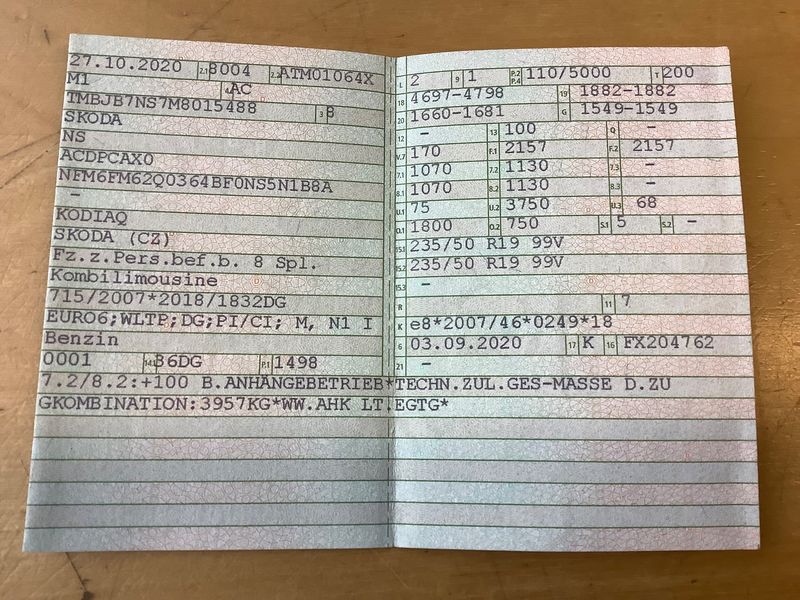 27.10.2020 2.1 8004 2.2 ATM01064X
M1 4 AC
TMBJB7NS7M8015488 3 8
SKODA
NS
ACDPCAX0
NFM6FM62Q0364BF0NS5N1B8A
–
KODIAQ
SKODA (CZ)
Fz.z.Pers.bef.b. 8 Spl.
Kombilimousine
715/2007*2018/1832DG
EURO6;WLTP;DG;PI/CI; M, N1 I
Benzin
0001 14.1 36DG P.1 1498
L 2 9 1 P.2 P.4 110/5000 T 200
18 4697-4798 19 1882-1882
20 1660-1681 G 1549-1549
12 – 13 100 Q –
V.7 170 F.1 2157 F.2 2157
7.1 1070 7.2 1130 7.3 –
8.1 1070 8.2 1130 8.3 –
U.1 75 U.2 3750 U.3 68
O.1 1800 O.2 750 S.1 5 S.2 –
15.1 235/50 R19 99V
15.2 235/50 R19 99V
15.3 –
R 11 7
K e8*2007/46*0249*18
6 03.09.2020 17 K 16 FX204762
21 –
7.2/8.2:+100 B.ANHÄNGEBETRIEB*TECHN.ZUL.GES-MASSE D.ZU
GKOMBINATION:3957KG*WW.AHK LT.EGTG*